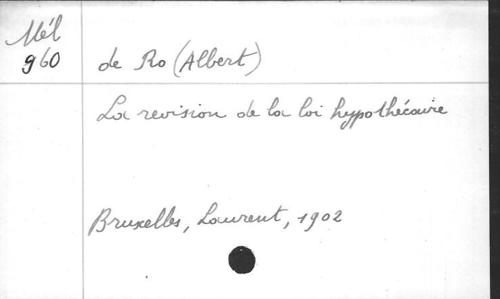 Mél
960
de Ro (Albert)
La revision de la loi hypothécaire
Bruxelles, Laurent, 1902